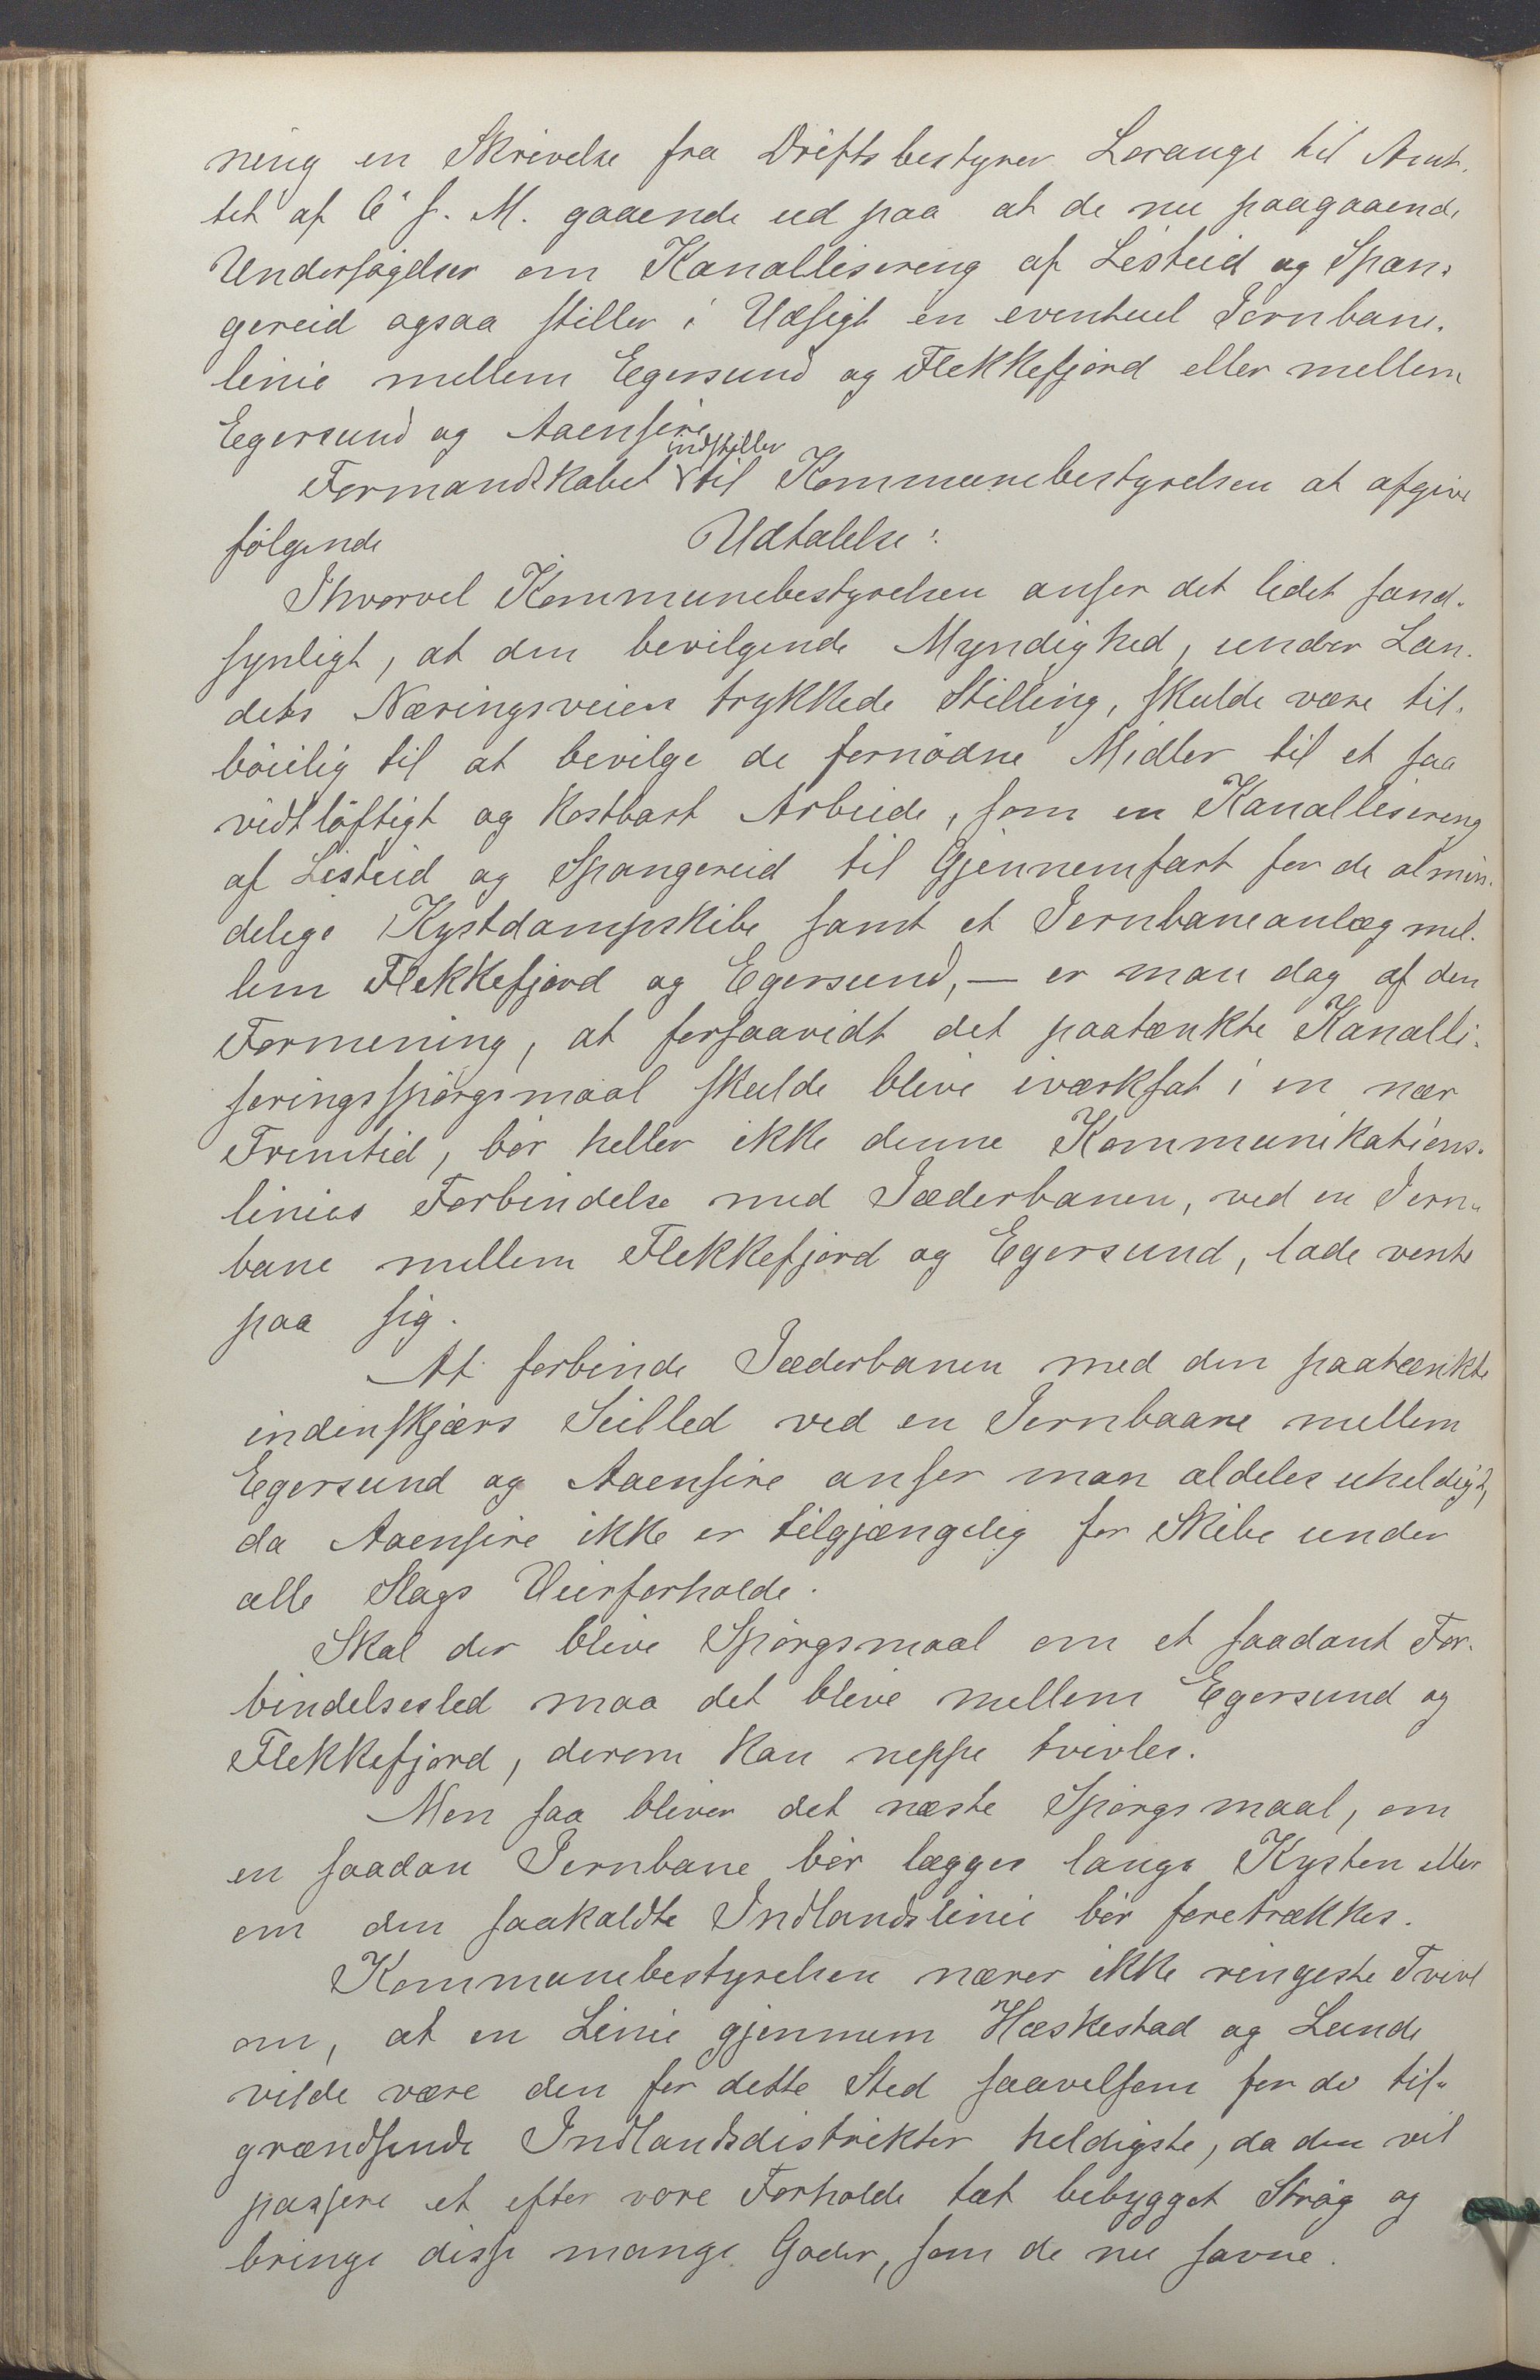 ning en Skrivelse fra Driftsbestyrer Lorange til Amt-
tet af 6' f. M. gaaende ud paa at de nu paagaaende
Undersøgelser om Kanallisering af Listeid og Span-
gereid ogsaa stiller i Udsigt en eventuel Jernbane-
linie mellem Egersund og Flekkefjord eller mellem
Egersund og Aaensire
indstiller
Formandskabet til Kommunebestyrelsen at afgive
følgende Udtalelse:
Ihvorvel Kommunebestyrelsen anser det lidet sand-
synligt, at den bevilgende Myndighed, under Lan-
dets Næringsveiers trykkede Stilling, skulde være til-
bøielig til at bevilge de fornødne Midler til et saa
vidtløftigt og kostbart Arbeide, som en Kanallisering
af Listeid og Spangereid til Gjennemfart for de almin-
delige Kystdampskibe samt et Jernbaneanlæg mel-
lem Flekkefjord og Egersund, — er man dog af den
Formening, at forsaavidt det paatænkte Kanalli-
seringsspørgsmaal skulde blive iværksat i en nær
Fremtid, bør heller ikke denne Kommunikations-
linies Forbindelse med Jæderbanen, ved en Jern-
bane mellem Flekkefjord og Egersund, lade vente
paa sig.
At forbinde Jæderbanen med den paatænkte
indenskjærs Seilled ved en Jernbaane mellem
Egersund og Aaensire anser man aldeles uheldigt,
da Aaensire ikke er tilgjængelig for Skibe under
alle Slags Veirforholde.
Skal der blive Spørgsmaal om et saadant For-
bindelsesled maa det blive mellem Egersund og
Flekkefjord, derom kan neppe tvivles.
Men saa bliver det næste Spørgsmaal, om
en saadan Jernbane bør lægges langs Kysten eller
om den saakaldte Indlandslinie bør foretrækkes.
Kommunebestyrelsen nærer ikke ringeste Tvivl
om, at en Linie gjennem Hæskestad og Lunde
vilde være den for dette Sted saavelsom for de til-
grændsende Indlandsdistrikter heldigste, da den vil
passere et efter vore Forholde tæt bebygget Strøg og
bringe disse mange Goder, som de nu savne.